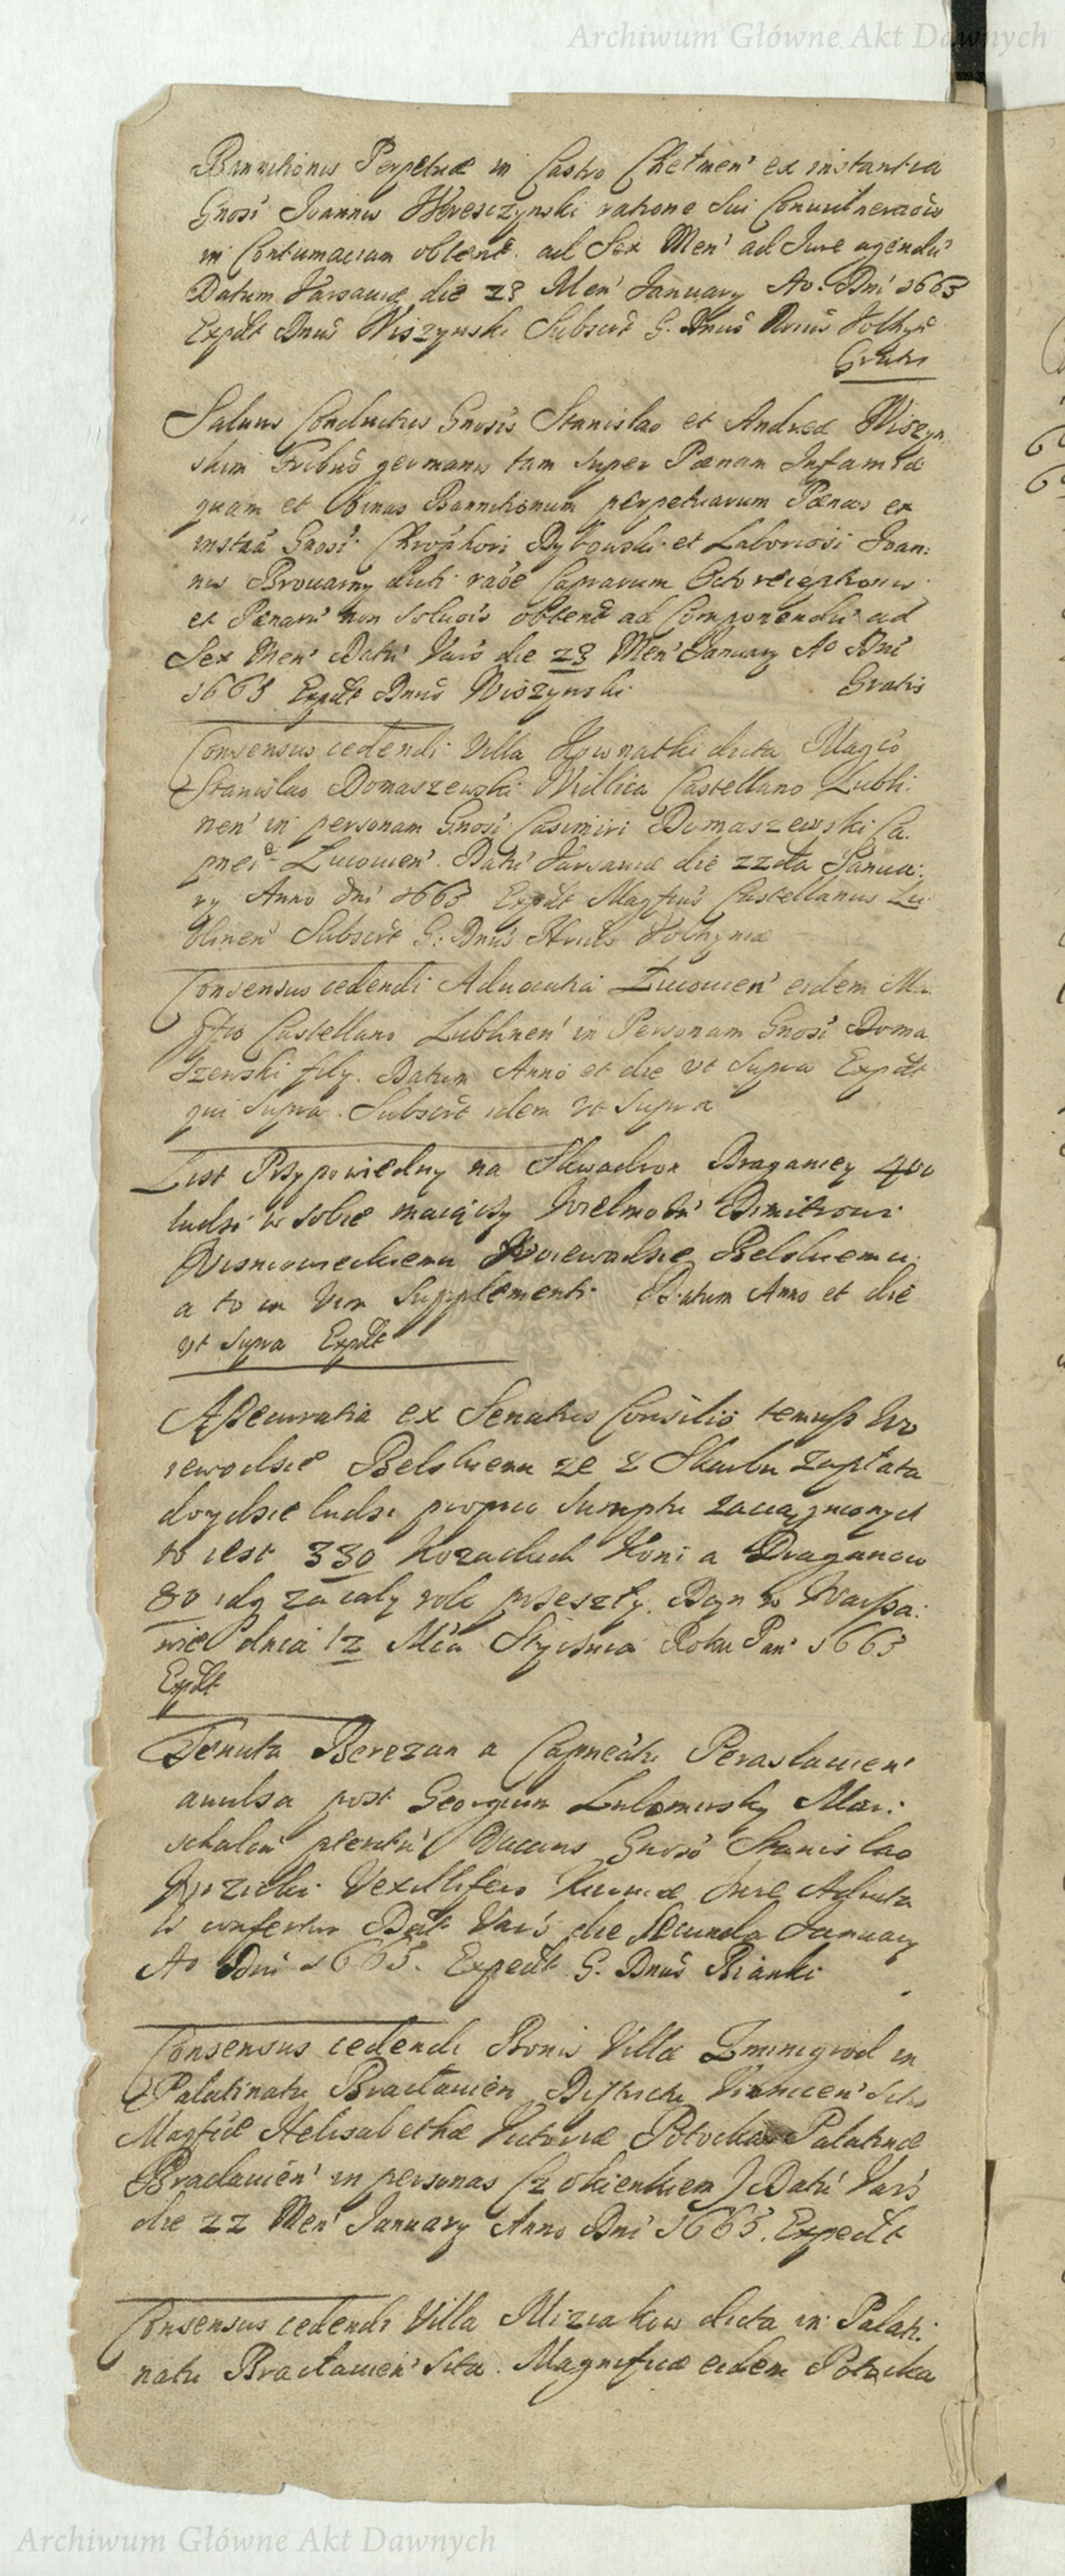 Archiwum Główne Akt Dawnych
Bannitionis Perpetuæ in Castro Chełmen' ex instantia
Gnosi Joannis Wereszczynski ratione sui
in Contumaciam obtent. ad Sex Men' ad Jure agendū
Datum Varsaviæ die 23 Men' January Ao. Dni 1663
Expdt Dnus Wiszynski Subscrt G. Dnus Volhyn
Gratis
Salvus Conductus Gnosis Stanislao et Andreæ Wiszyn
skim Fribus germanis tam super Pœnam Infamiæ
quam et binas Bannitionum perpetuarum Pœnas ex
instaā Gnosi Chrophori Dybowski et Laboriosi Joan:
nis Browarny raōe Caprarum Octo receptionis
et Pœnarū non solutis obtent ad Componendū ad
Sex Men' Datū Vars die 23 Men' January Ao Dni
1663 Expdt Dnus Wiszynski Gratis
Consensus cedendi Villa Kownatki dicta Magco
Stanislao Domaszewski Castellano Lubli:
nen' in personam Gnosi Casimiri Domaszewski Ca.
pnei Lucouien'. Datū Varsaviæ die 22da Janua:
ry Anno dni 1663 Expdt Magfcus Castellanus Lu
blinen' Subscrt G: Dnus Volhyniæ
Consensus cedendi Advocatia Lucouien' eidem Ma
gfco Castellano Lublinen' in Personam Gnosi Doma
szewski fily. Datum Anno et die ut supra Expdt
qui supra. Subscrt idem ut supra
List Przypowiedny na Skwadron Draganiey 400
ludzi w sobie maiący Wielmoż' Dimitrowi
Wisniowieckiemu Woiewodzie Belskiemu
a to in Vim Supplementi Datum Anno et die
ut supra Expdt
Assecuratia ex Senatus Consilio temuß Wo
iewodzie Belskiemu ze z Skarbu zapłata
doydzie ludzi proprio sumptu zaciągnionych
to iest 330 Kozackich Koni a Draganow
80 idq za cały rok przeszły. Dan w Warßa:
wie dnia 12 Mca Stycznia Roku Pan' 1663
Expdt
Tenuta Berezan a Capneatu Perasłauien'
auulsa post Georgium Lubomirsky Mar:
schalcū Vacans Gnoso Stanislao
Vexillifero Kiouiæ Jure
to confertur Dat Vars die secunda January
Ao Dni 1663. Expedt G. Dnus Bianki
Consensus cedendi Bonis Villæ Zminigrod in
Palatinatu Bracłauien Districtu Vinnicen' sitis
Magficæ Helisabethæ Victoriæ Potocka Palatinæ
Bracłauien' in personas (z okienkiem) Datū Vars
die 22 Men' January Anno Dni 1663. Expedt
Consensus cedendi Villa Miziakow dicta in Palati:
natu Bracłauien' sita. Magnificæ eidem Potocka
Archiwum Główne Akt Dawnych